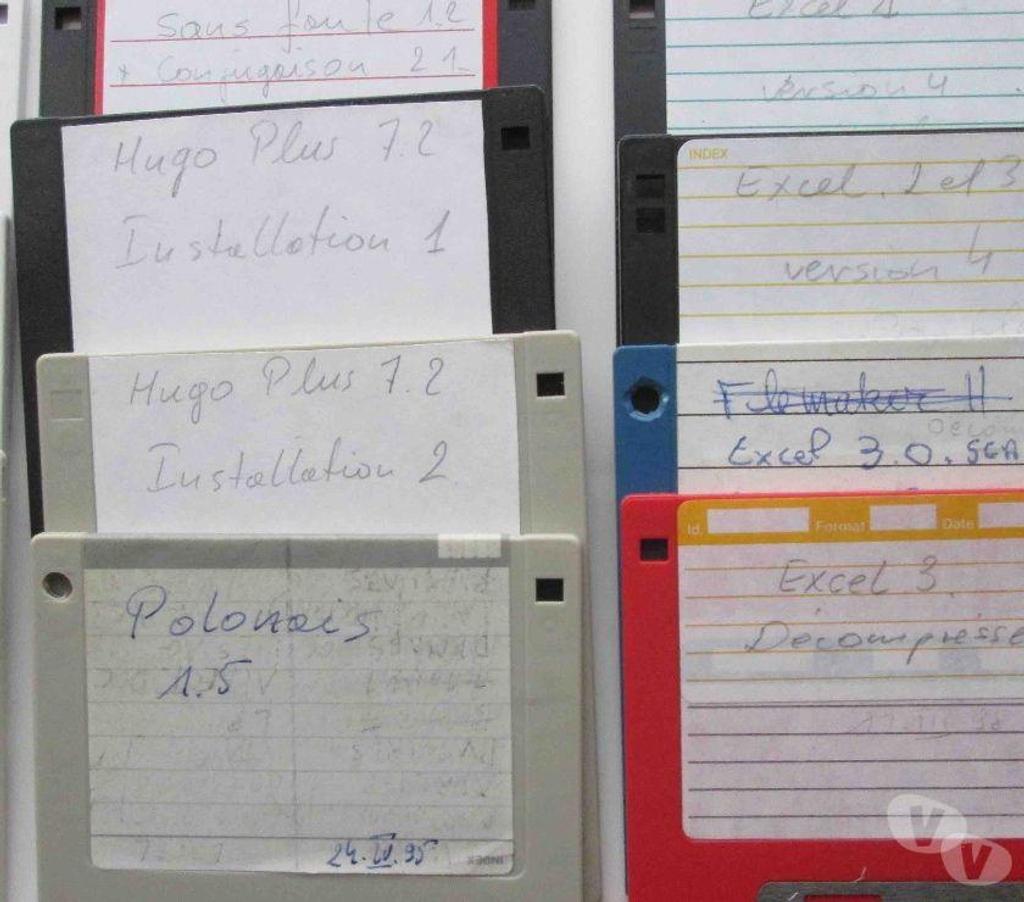 Sans faute 1.2
* Conjugaison 2 1
Hugo Plus 7.2
Installation 1
Hugo Plus 7.2
Installation 2
Polonais
1.5
24.IV.95
INDEX
Excel 1
version 4
INDEX
Excel 2 et 3
version 4
Filemaker II
Excel 3.0.
Id. Format Date
Excel 3.
Decompresse
VV